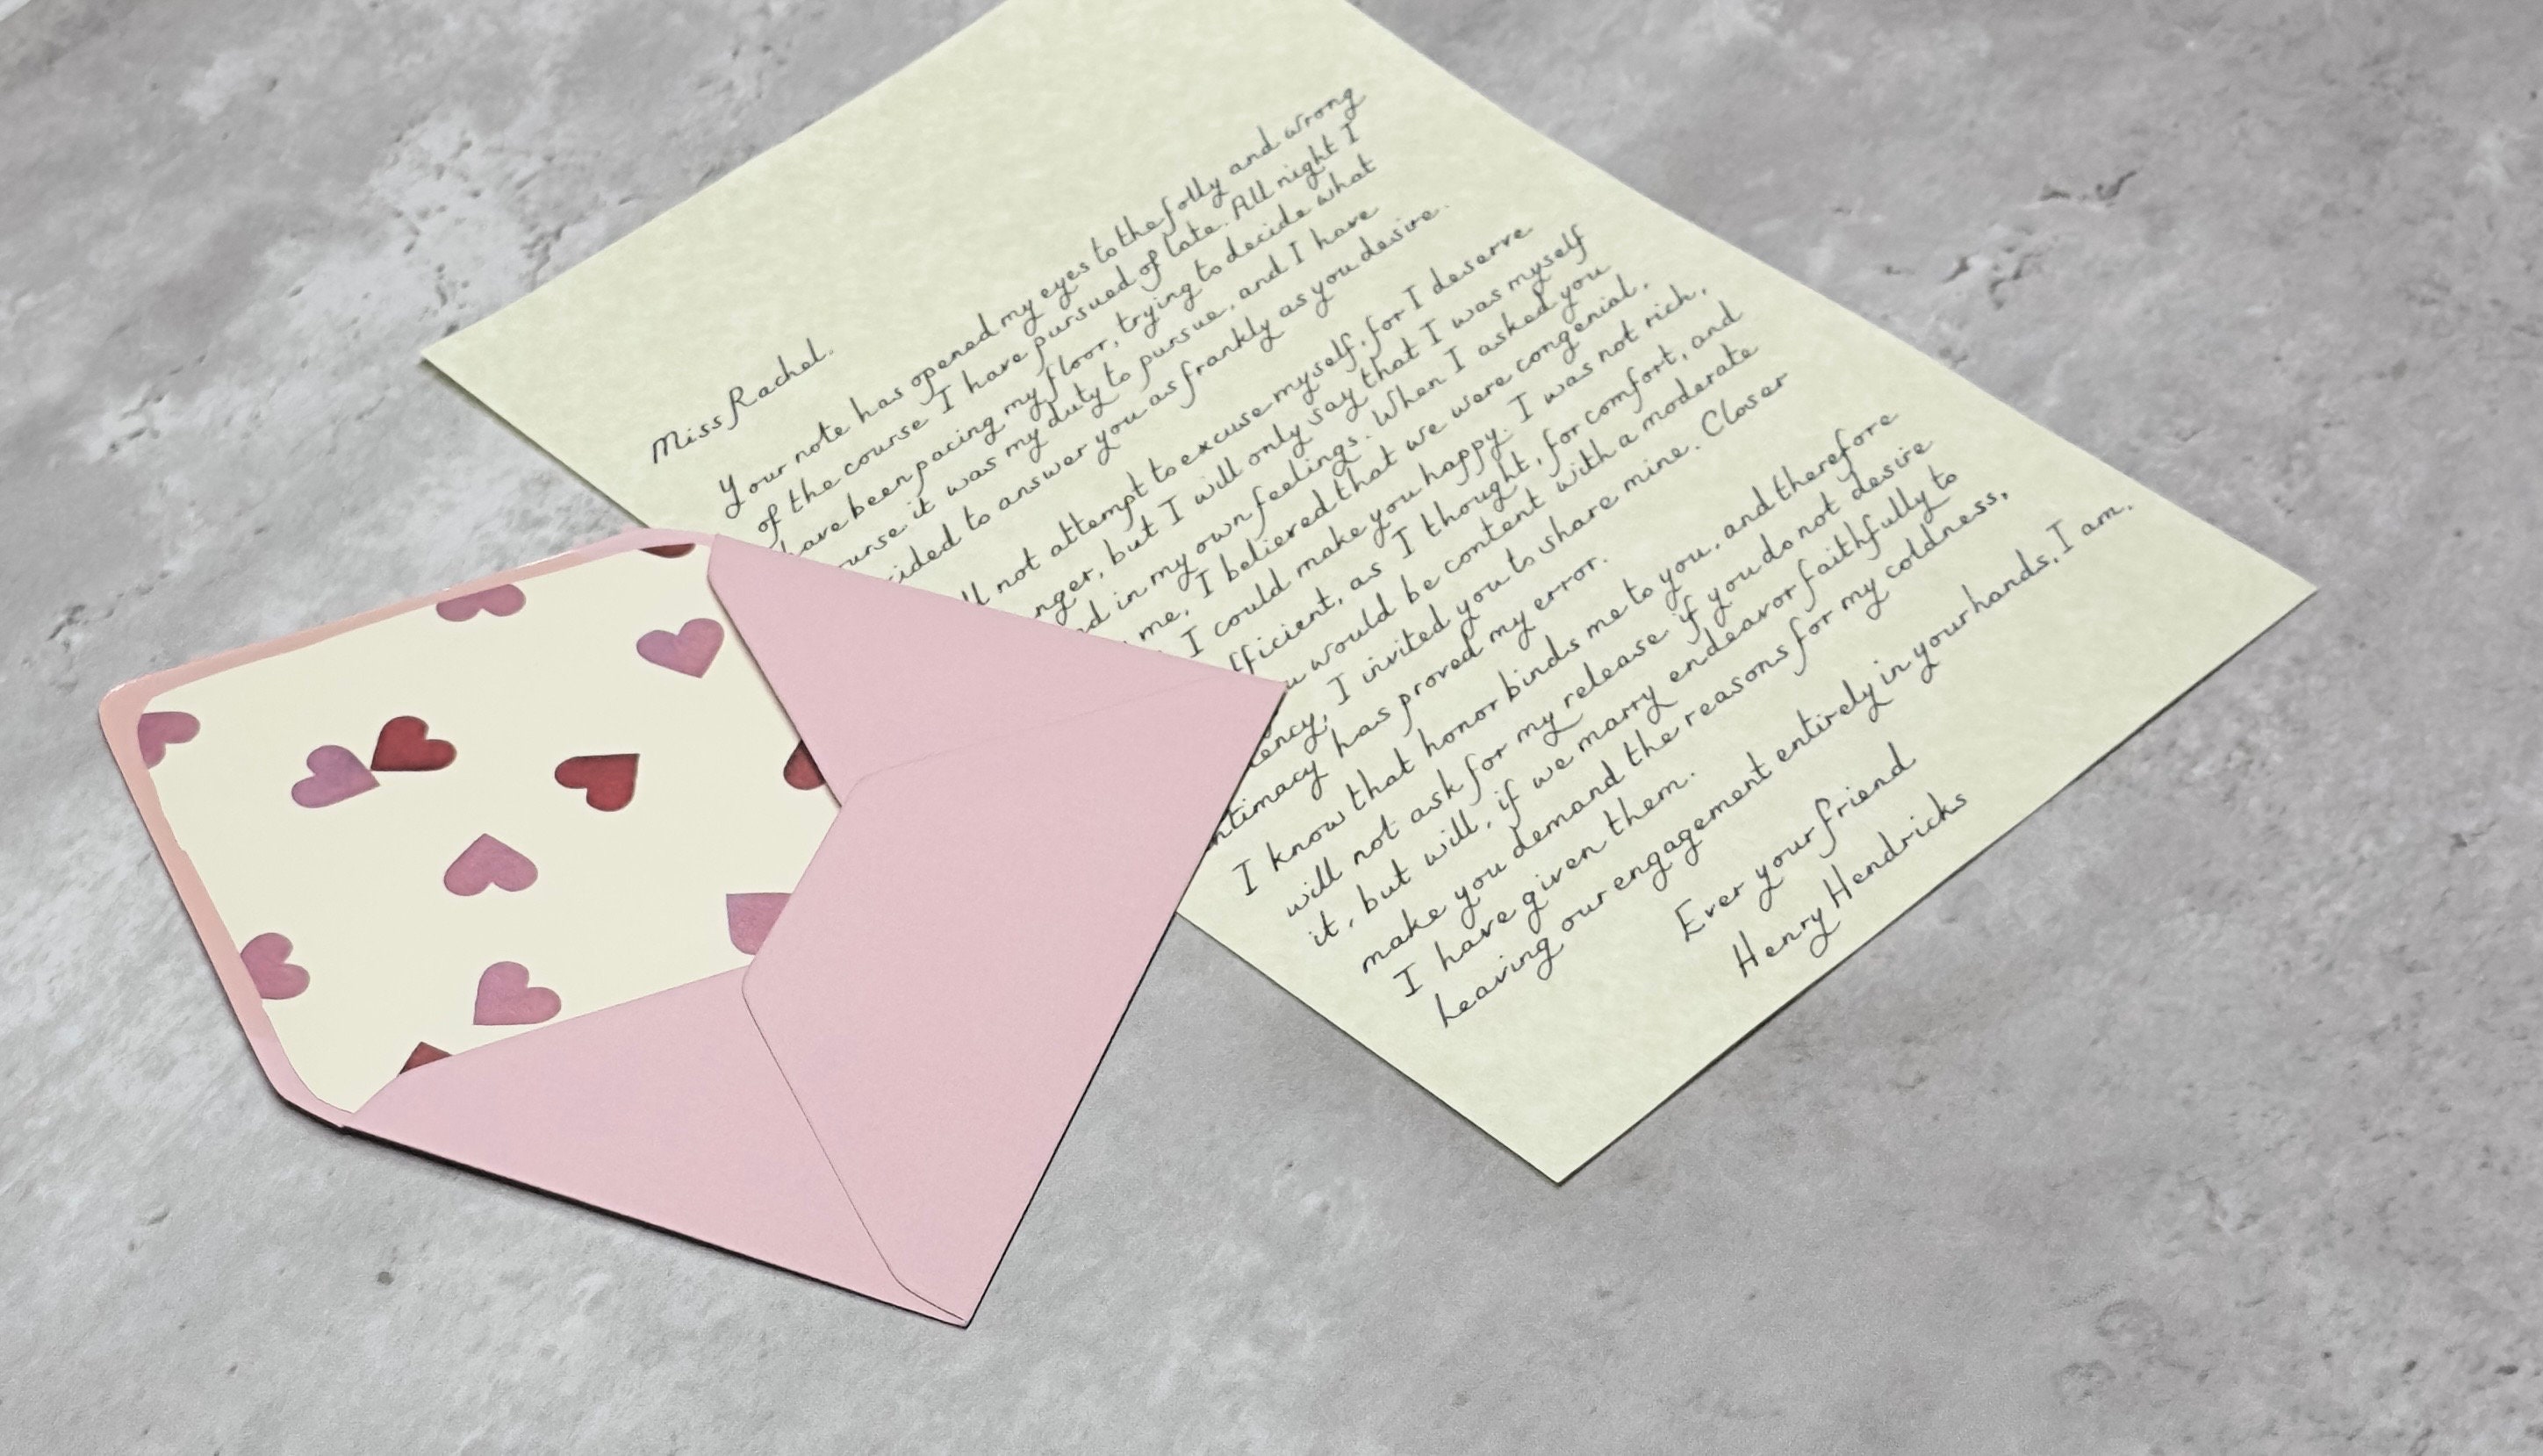 Miss Rachel.
Your note has opened my eyes to the folly and wrong
of the course I have pursued of late. All night I
have been pacing my floor, trying to decide what
ourse it was my duty to pursue, and I have
cided to answer you as frankly as you desire.
ll not attempt to excuse myself, for I deserve
nger, but I will only say that I was myself
d in my own feelings. When I asked you
me, I believed that we were congenial,
I could make you happy. I was not rich,
fficient, as I thought, for comfort, and
u would be content with a moderate
tency, I invited you to share mine. Closer
ntimacy has proved my error.
I know that honor binds me to you, and therefore
will not ask for my release if you do not desire
it, but will, if we marry endeavor faithfully to
make you demand the reasons for my coldness,
I have given them.
Leaving our engagement entirely in your hands, I am,
Ever your friend
Henry Hendricks